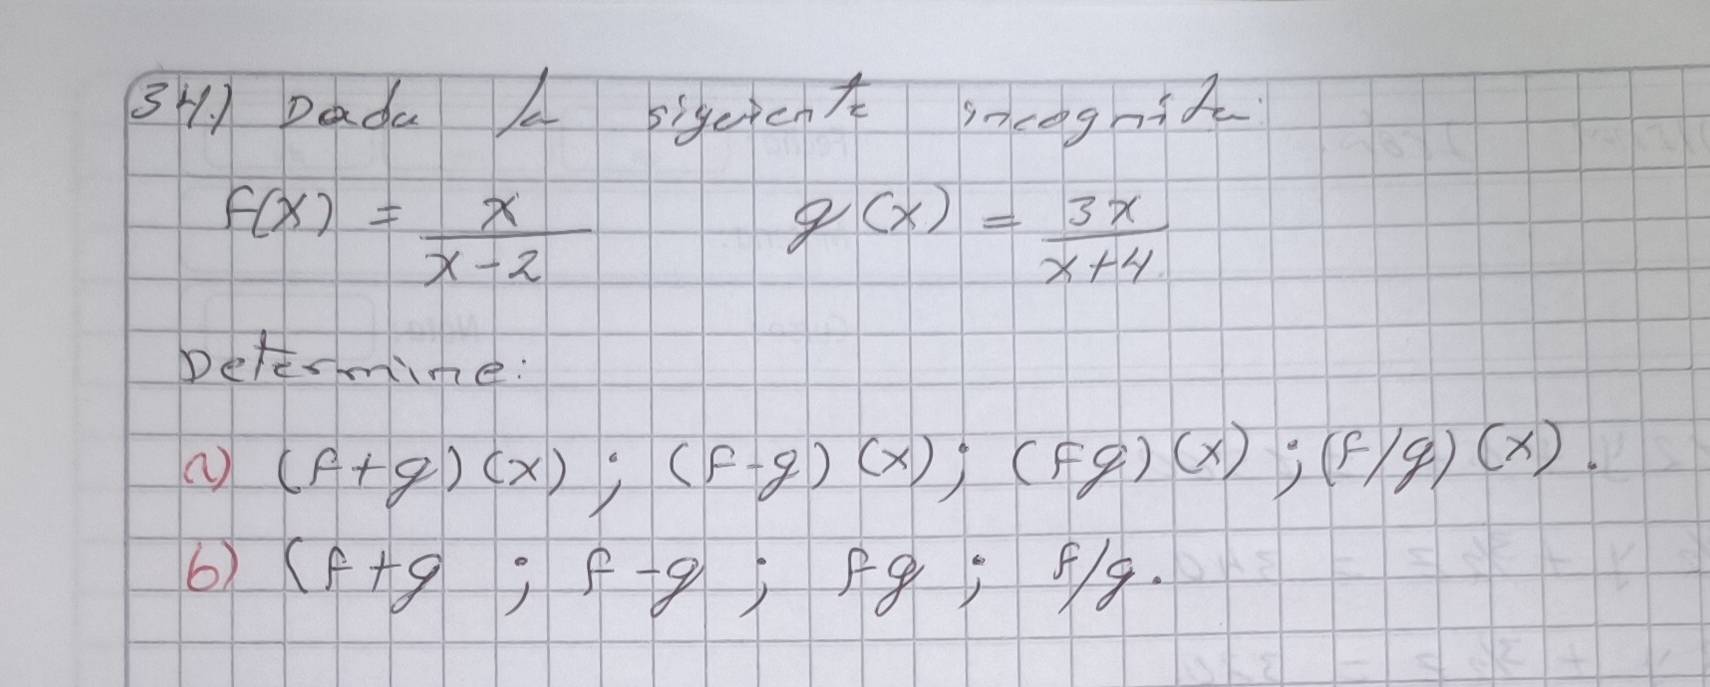 34.) Dada la siguiente incognita:
f(x) = x/(x-2) g(x) = 3x/(x+4)
Determine:
a) (f+g)(x) ; (f-g)(x); (fg)(x) ; (f/g)(x).
b) (f+g ; f-g ; fg ; f/g.